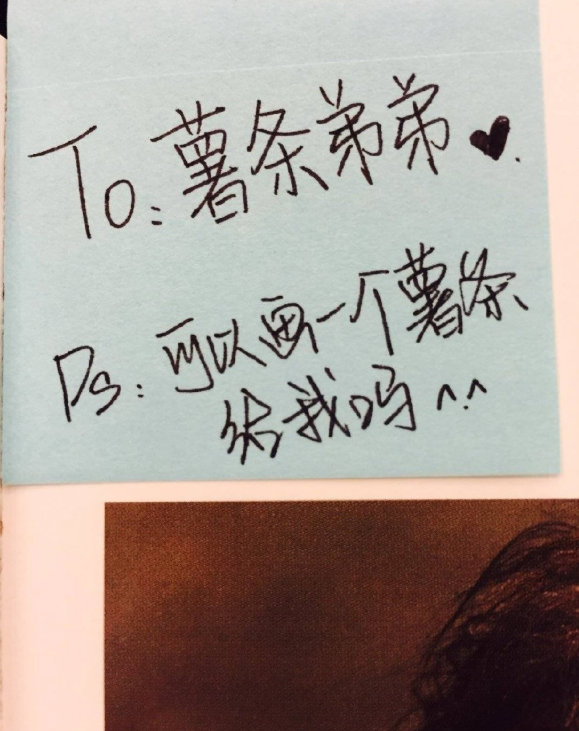 To: 薯条弟弟 ♥.
Ps: 可以画一个薯条
给我吗 ^.^